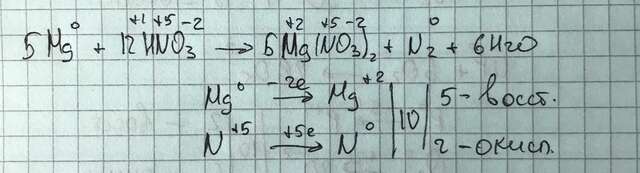 5Mg⁰ + 12H⁺¹N⁺⁵O₃⁻² → 5Mg⁺²(N⁺⁵O₃⁻²)₂ + N₂⁰ + 6H2O
Mg⁰ −2e → Mg⁺² | 10 | 5 - восст.
N⁺⁵ +5e → N⁰ | 2 - окисл.